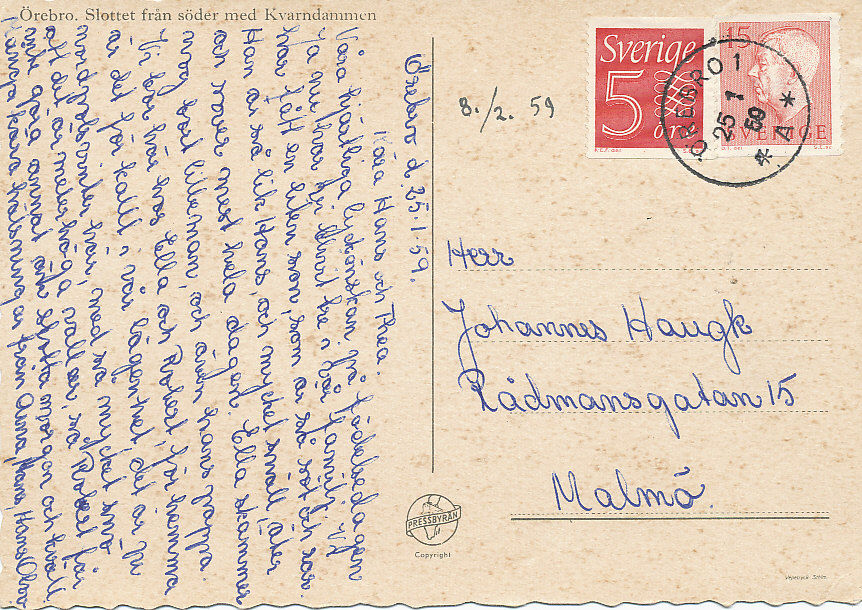 Örebro. Slottet från söder med Kvarndammen
Örebro d. 25.1.59.
Kära Hans och Thea.
Våra hjärtliga lyckönskan på födelsedagen
Ja nu har vi blivit tre i vår familj. Vi
har fått en liten son, som är så söt och rar.
Han är så lik Hans, och mycket snäll, äter
och sover mest hela dagen. Ella skämmer
nog bort lilleman, och även hans pappa
Vi bor här hos Ella och Robert, för hemma
är det för kallt i vår lägenhet, det är nu
nordpolsvinter här, med så mycket snö
att det är meterhöga vallar, så Robert får
inte göra annat än skotta morgon och kväll
Många kära hälsningar från Anna, Hans, Hans Olov
8./2. 59
Sverige
5
öre
15
SVERIGE
ÖREBRO 1
25 1
59
* A *
Herr
Johannes Haugk
Rådmansgatan 15
Malmö.
PRESSBYRÅN
Copyright
Vepetryck Sthlm.